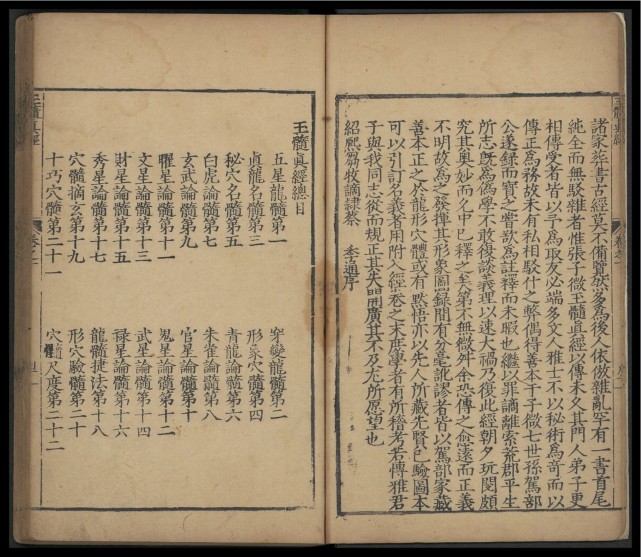 諸家葬書古經莫不備覽然多為後人依倣雜亂罕有一書首尾
純全而無駁雜者惟張子微玉髓真經以傳未久其門人弟子更
相傳受者皆以予為取友必端多文人雅士不以秘術為奇而以
傳正為務故未有私相駁什之弊偶得善本于子微七世孫駕部
公遂録而寶之嘗欲為註釋而未暇也繼以罪謫離索荒郡平生
所志旣為偽學不敢復談義理以速大禍乃復此經朝夕玩閱頗
究其奥妙而久中已釋之矣第不無微舛余恐傳之愈遠而正義
不明故為之發揮其形象圖録間有分毫訛謬者皆以駕部家藏
善本正之於龍形穴體或有默悟亦以先人所藏先賢已驗圖本
可以引訂名義者用附入經卷之末庶學者有所稽考若博雅君
子與我同志從而規正其失開廣其不及尤所愿望也
紹熙芻牧謫隷蔡 季通序
玉髓真經總目
五星龍髓第一 穿變龍髓第二
貞龍名髓第三 形家穴髓第四
秘穴名髓第五 青龍論髓第六
白虎論髓第七 朱雀論髓第八
玄武論髓第九 官星論髓第十
曜星論髓第十一 鬼星論髓第十二
文星論髓第十三 武星論髓第十四
財星論髓第十五 禄星論髓第十六
秀星論髓第十七 龍髓捷法第十八
穴髓摘玄第十九 形穴驗髓第二十
十巧穴髓第二十一 穴髓尺度第二十二
玉髓真經